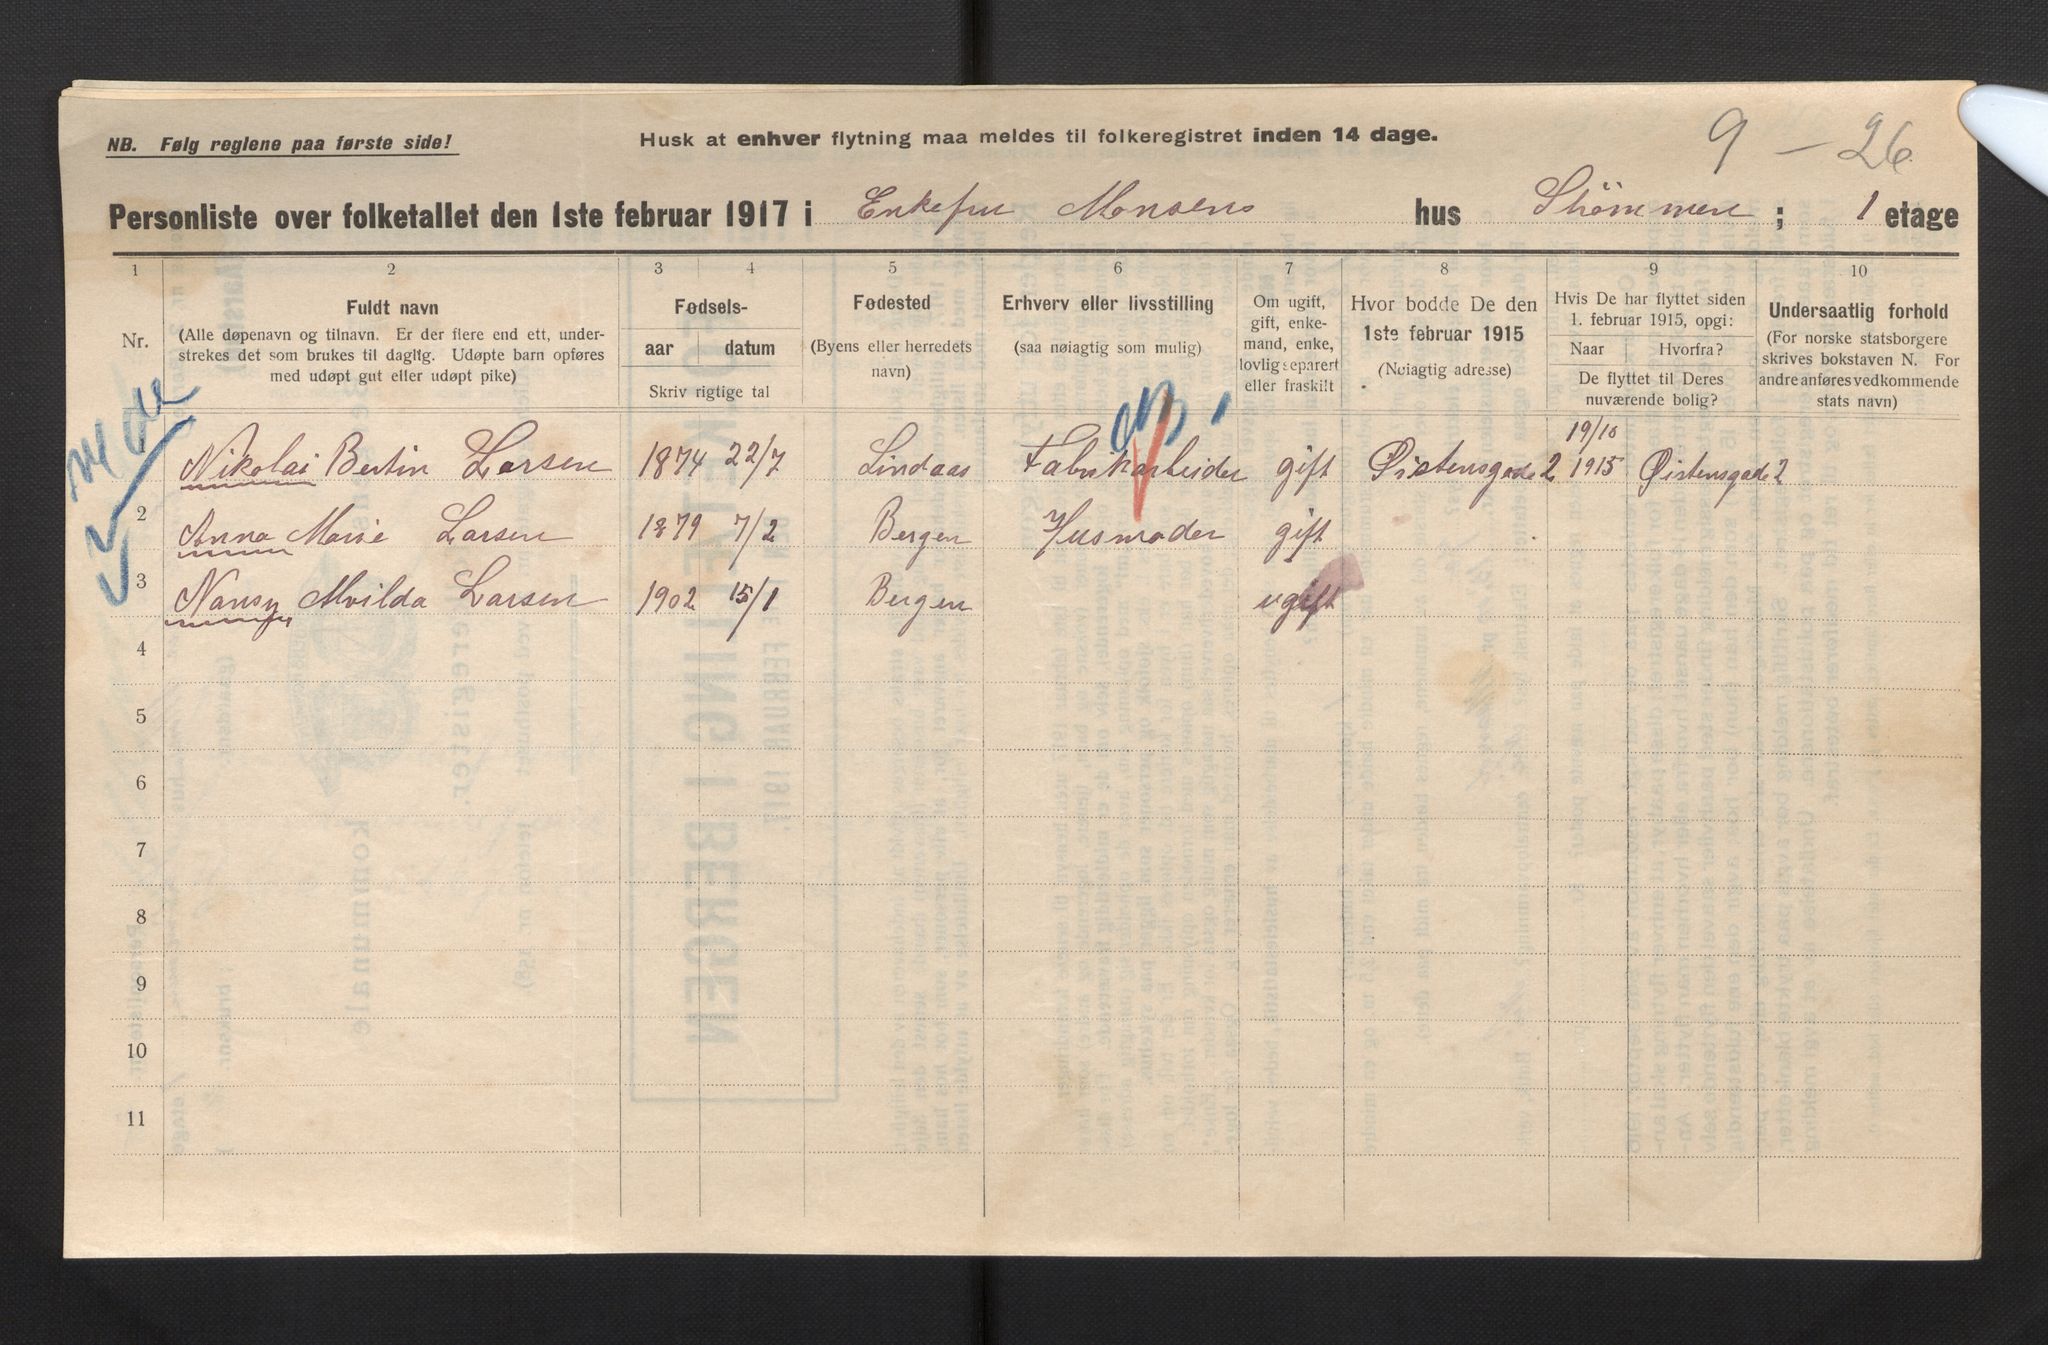 NB. Følg reglene paa første side!
Husk at enhver flytning maa meldes til folkeregistret inden 14 dage.
9 – 26
Personliste over folketallet den 1ste februar 1917 i Enkefru Monsens hus Strømmen; 1 etage
1 2 3 4 5 6 7 8 9 10
Nr.
Fuldt navn
(Alle døpenavn og tilnavn. Er der flere end ett, under-
strekes det som brukes til daglig. Udøpte barn opføres
med udøpt gut eller udøpt pike)
Fødsels-
aar datum
Skriv rigtige tal
Fødested
(Byens eller herredets
navn)
Erhverv eller livsstilling
(saa nøiagtig som mulig)
Om ugift,
gift, enke-
mand, enke,
lovlig separert
eller fraskilt
Hvor bodde De den
1ste februar 1915
(Nøiagtig adresse)
Hvis De har flyttet siden
1. februar 1915, opgi:
Naar Hvorfra?
De flyttet til Deres
nuværende bolig?
Undersaatlig forhold
(For norske statsborgere
skrives bokstaven N. For
andre anføres vedkommende
stats navn)
19/10
1 Nikolai Bertin Larsen 1874 22/7 Lindaas Fabrikarbeider gift Øistensgade 2 1915 Øistensgade 2
2 Anna Marie Larsen 1879 7/2 Bergen Husmoder gift
3 Nansy Alvilda Larsen 1902 15/1 Bergen ugift
4
5
6
7
8
9
10
11